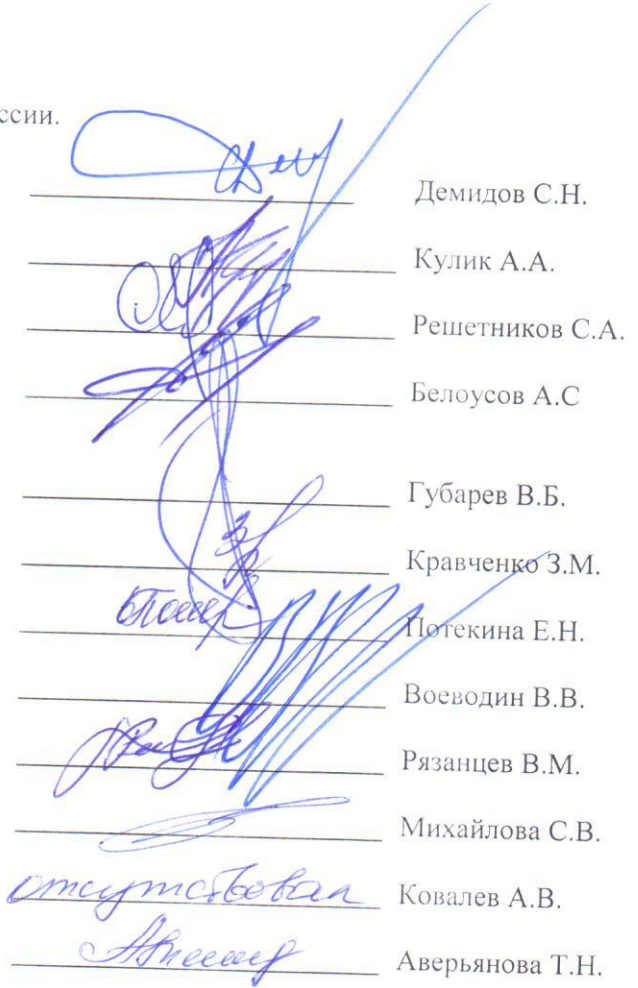 ссии.
Демидов С.Н.
Кулик А.А.
Решетников С.А.
Белоусов А.С
Губарев В.Б.
Кравченко З.М.
Потекина Е.Н.
Воеводин В.В.
Рязанцев В.М.
Михайлова С.В.
отсутствовал Ковалев А.В.
Аверьянова Т.Н.